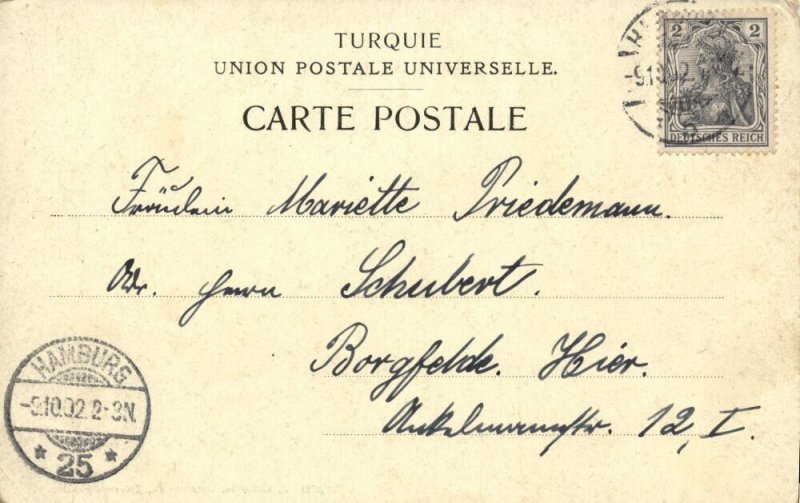 TURQUIE
UNION POSTALE UNIVERSELLE.
CARTE POSTALE
2 2
DEUTSCHES REICH
-9.10.02.
Fräulein Mariette Priedemann.
Adr. Herrn Schubert.
Borgfelde. Hier.
Ankelmannstr. 12, I.
HAMBURG
-9.10.02 2-3N.
* 25 *